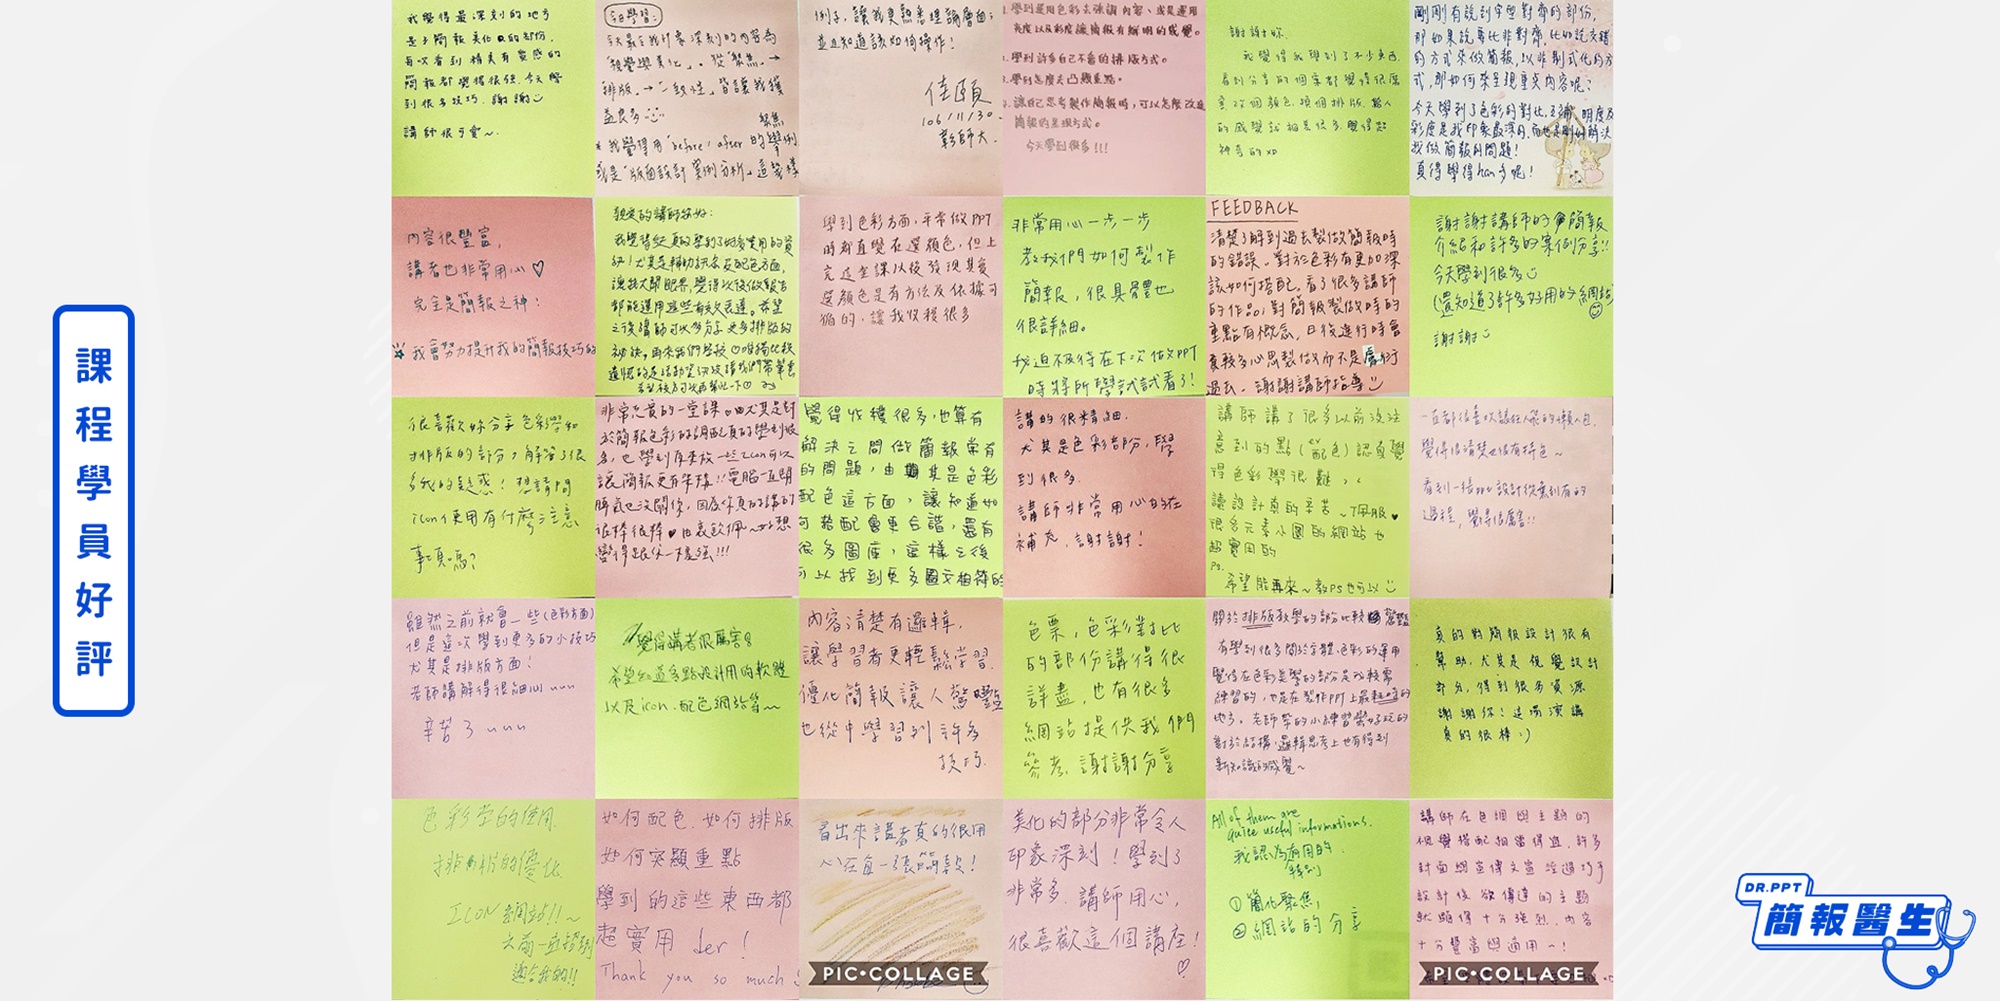 課程學員好評
我覺得最深刻的地方
是在簡報美化的部份,
每次看到精美有質感的
簡報都覺得很強,今天學
到很多技巧,謝謝
講師很可愛~
今日學習:
今天最令我印象深刻的內容為
「視覺與美化」。從「聚焦」→
「排版」→「一致性」皆讓我獲
益良多
聚焦,
*我覺得用「before, after 的舉例
或是「版面設計案例分析」這幾樣
例子,讓我更熟悉理論層面;
並且知道該如何操作!
佳頤
106/11/30.
彰師大.
1. 學到運用色彩去強調內容、或是運用
亮度以及彩度讓簡報有鮮明的感覺。
2. 學到許多自己不會的排版方式。
3. 學到怎麼去凸顯重點。
4. 讓自己思考製作簡報時,可以怎麼改進
簡報的呈現方式。
今天學到很多!!!
謝謝妳
我覺得我學到了不少東西
看到分享的個案都覺得很厲
害,改個顏色,換個排版,給人
的感覺就相差很多,覺得超
神奇的XD
剛剛有說到字型對齊的部份,
那如果說要比非對齊,比如說交錯
的方式來做簡報,以非制式化的方
式,那如何來呈現重點內容呢?
今天學到了色彩的對比、互補、明度及
彩度是我印象最深刻,而也是剛好解決
我做簡報的問題!
真得學得han多呢!
內容很豐富,
講者也非常用心♡
完全是簡報之神!
我會努力提升我的簡報技巧的
親愛的講師你好:
我覺得從真的學到了好多實用的資
訊!尤其是輔助訊息及配色方面,
讓我大開眼界,覺得以後做報告
都能運用這些有效表達。希望
之後講師可以多分享更多排版的
學到色彩方面,平常做PPT
時都直覺在選顏色,但上
完這堂課以後發現其實
選顏色是有方法及依據可
循的,讓我收穫很多
非常用心一步一步
教我們如何製作
簡報,很具體也
很詳細。
我迫不及待在下次做PPT
時將所學試試看了!
FEEDBACK
清楚了解到過去製做簡報時
的錯誤。對於色彩有更加深
該如何搭配。看了很多講師
的作品,對簡報製做時的
重點有概念,日後進行時會
花較多心思製做而不是敷衍
過去。謝謝講師指導
謝謝講師的簡報
介紹和許多的案例分享!!
今天學到很多
(還知道了許多好用的網站)
謝謝
很喜歡妳分享色彩學和
排版的部分,解答了很
多我的疑惑!想請問
icon使用有什麼注意
事項嗎?
非常充實的一堂課。尤其是對
於簡報色彩的調配真的學到很
多,也學到原來放一些icon可以
讓簡報更有架構!!電腦一直鬧
脾氣也沒關係,因為你真的講的
很棒很棒♥由衷欽佩~好想
變得跟你一樣強!!!
覺得收穫很多,也算有
解決之間做簡報常有
的問題,由其是色彩
配色這方面,讓知道如
何搭配會更合諧,還有
很多圖庫,這樣之後
可以找到更多圖文相符的
講的很精細.
尤其是色彩部分,學
到很多.
講師非常用心的在
補充,謝謝!
講師講了很多以前沒注
意到的點(配色)認真覺
得色彩學很難,,
讀設計真的辛苦~佩服♥
很多元素小圖的網站也
超實用的
Ps.
希望能再來~教PS也可以
一直都很喜歡議題人很的懶人包,
覺得很清楚也很有特色~
過程,覺得很厲害!!
雖然之前就會一些(色彩方面)
但是這次學到更多的小技巧
尤其是排版方面!
老師講解得很細心uuu
辛苦了uuu
覺得講者很厲害!
希望知道多點設計用的軟體
以及icon.配色網站等~
內容清楚有邏輯.
讓學習者更輕鬆學習.
優化簡報讓人驚豔
也從中學習到許多
技巧.
色票,色彩對比
的部份講得很
詳盡,也有很多
網站提供我們
參考,謝謝分享
關於排版教學的部分比較驚豔
有學到很多關於字體.色彩的運用
覺得在色彩美學的部分是我較需
練習的,也是在製作PPT上最耗時的
地方,老師帶的小練習蠻好玩的
對於結構.邏輯思考上也有得到
新知識的感覺~
真的對簡報設計很有
幫助,尤其是視覺設計
部分,得到很多資源
謝謝你!這場演講
真的很棒:)
色彩學的使用.
排版的優化.
ICON網站!!~
適合我的!!
如何配色.如何排版
如何突顯重點
學到的這些東西都
超實用der!
Thank you so much!
看出來講者真的很用
心在每一張簡報!
PIC•COLLAGE
美化的部分非常令人
印象深刻!學到了
非常多,講師用心,
很喜歡這個講座!
All of them are
quite useful informations.
我認為有用的
特別
①簡化聚焦,
②網站的分享
講師在色調與主題的
視覺搭配相當得道,許多
封面網宣傳文宣經過巧手
設計後,欲傳達的主題
就顯得十分強烈,內容
十分豐富與適用~!
PIC•COLLAGE
DR.PPT
簡報醫生